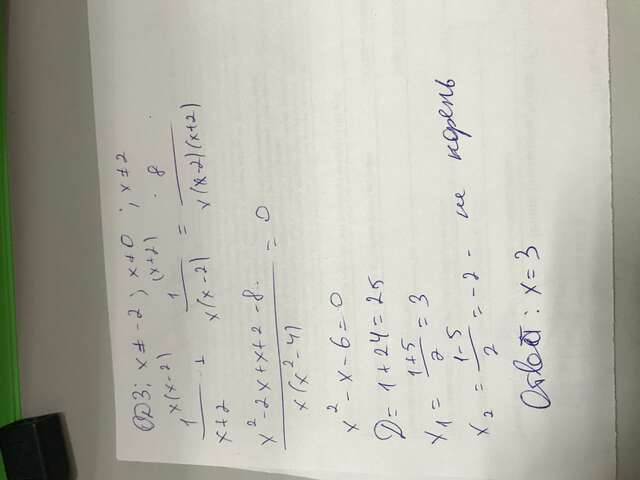 ОДЗ: x ≠ -2; x ≠ 0; x ≠ 2
x(x-2) (x+2) 8
1/(x+2) + 1/(x(x-2)) = 8/(x(x-2)(x+2))
(x²-2x+x+2-8)/(x(x²-4)) = 0
x²-x-6=0
D=1+24=25
x₁ = (1+5)/2 = 3
x₂ = (1-5)/2 = -2 - не корень
Ответ: x=3